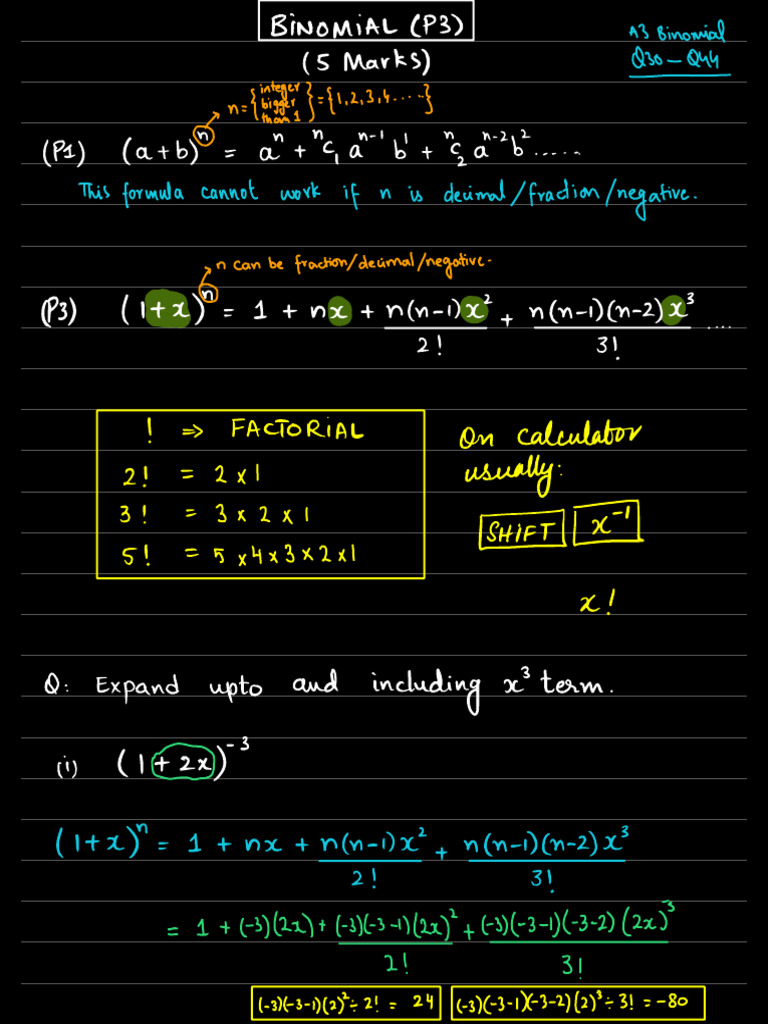 BINOMIAL (P3)
(5 Marks)
A3 Binomial
Q30 – Q44
n = {integer bigger than 1} = {1, 2, 3, 4 .....}
(P1) (a + b)ⁿ = aⁿ + ⁿC₁ aⁿ⁻¹ b¹ + ⁿC₂ aⁿ⁻² b² .....
This formula cannot work if n is decimal/fraction/negative.
n can be fraction/decimal/negative.
(P3) (1 + x)ⁿ = 1 + nx + n(n-1)x²/2! + n(n-1)(n-2)x³/3! ....
! ⇒ FACTORIAL
2! = 2 × 1
3! = 3 × 2 × 1
5! = 5 × 4 × 3 × 2 × 1
On calculator
usually:
SHIFT x⁻¹
x!
Q: Expand upto and including x³ term.
(i) (1 + 2x)⁻³
(1 + x)ⁿ = 1 + nx + n(n-1)x²/2! + n(n-1)(n-2)x³/3!
= 1 + (-3)(2x) + (-3)(-3-1)(2x)²/2! + (-3)(-3-1)(-3-2)(2x)³/3!
(-3)(-3-1)(2)² ÷ 2! = 24
(-3)(-3-1)(-3-2)(2)³ ÷ 3! = -80